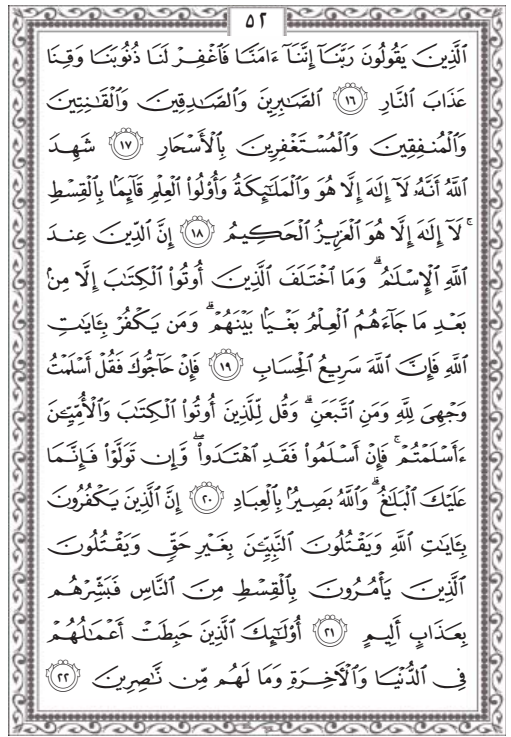 ٥٢
ٱلَّذِينَ يَقُولُونَ رَبَّنَآ إِنَّنَآ ءَامَنَّا فَٱغْفِرْ لَنَا ذُنُوبَنَا وَقِنَا
عَذَابَ ٱلنَّارِ ١٦ ٱلصَّٰبِرِينَ وَٱلصَّٰدِقِينَ وَٱلْقَٰنِتِينَ
وَٱلْمُنفِقِينَ وَٱلْمُسْتَغْفِرِينَ بِٱلْأَسْحَارِ ١٧ شَهِدَ
ٱللَّهُ أَنَّهُۥ لَآ إِلَٰهَ إِلَّا هُوَ وَٱلْمَلَٰٓئِكَةُ وَأُو۟لُوا۟ ٱلْعِلْمِ قَآئِمًۢا بِٱلْقِسْطِ
ۚ لَآ إِلَٰهَ إِلَّا هُوَ ٱلْعَزِيزُ ٱلْحَكِيمُ ١٨ إِنَّ ٱلدِّينَ عِندَ
ٱللَّهِ ٱلْإِسْلَٰمُ ۗ وَمَا ٱخْتَلَفَ ٱلَّذِينَ أُوتُوا۟ ٱلْكِتَٰبَ إِلَّا مِنۢ
بَعْدِ مَا جَآءَهُمُ ٱلْعِلْمُ بَغْيًۢا بَيْنَهُمْ ۗ وَمَن يَكْفُرْ بِـَٔايَٰتِ
ٱللَّهِ فَإِنَّ ٱللَّهَ سَرِيعُ ٱلْحِسَابِ ١٩ فَإِنْ حَآجُّوكَ فَقُلْ أَسْلَمْتُ
وَجْهِىَ لِلَّهِ وَمَنِ ٱتَّبَعَنِ ۗ وَقُل لِّلَّذِينَ أُوتُوا۟ ٱلْكِتَٰبَ وَٱلْأُمِّيِّـۧنَ
ءَأَسْلَمْتُمْ ۚ فَإِنْ أَسْلَمُوا۟ فَقَدِ ٱهْتَدَوا۟ ۖ وَّإِن تَوَلَّوْا۟ فَإِنَّمَا
عَلَيْكَ ٱلْبَلَٰغُ ۗ وَٱللَّهُ بَصِيرٌۢ بِٱلْعِبَادِ ٢٠ إِنَّ ٱلَّذِينَ يَكْفُرُونَ
بِـَٔايَٰتِ ٱللَّهِ وَيَقْتُلُونَ ٱلنَّبِيِّـۧنَ بِغَيْرِ حَقٍّ وَيَقْتُلُونَ
ٱلَّذِينَ يَأْمُرُونَ بِٱلْقِسْطِ مِنَ ٱلنَّاسِ فَبَشِّرْهُم
بِعَذَابٍ أَلِيمٍ ٢١ أُو۟لَٰٓئِكَ ٱلَّذِينَ حَبِطَتْ أَعْمَٰلُهُمْ
فِى ٱلدُّنْيَا وَٱلْـَٔاخِرَةِ وَمَا لَهُم مِّن نَّٰصِرِينَ ٢٢